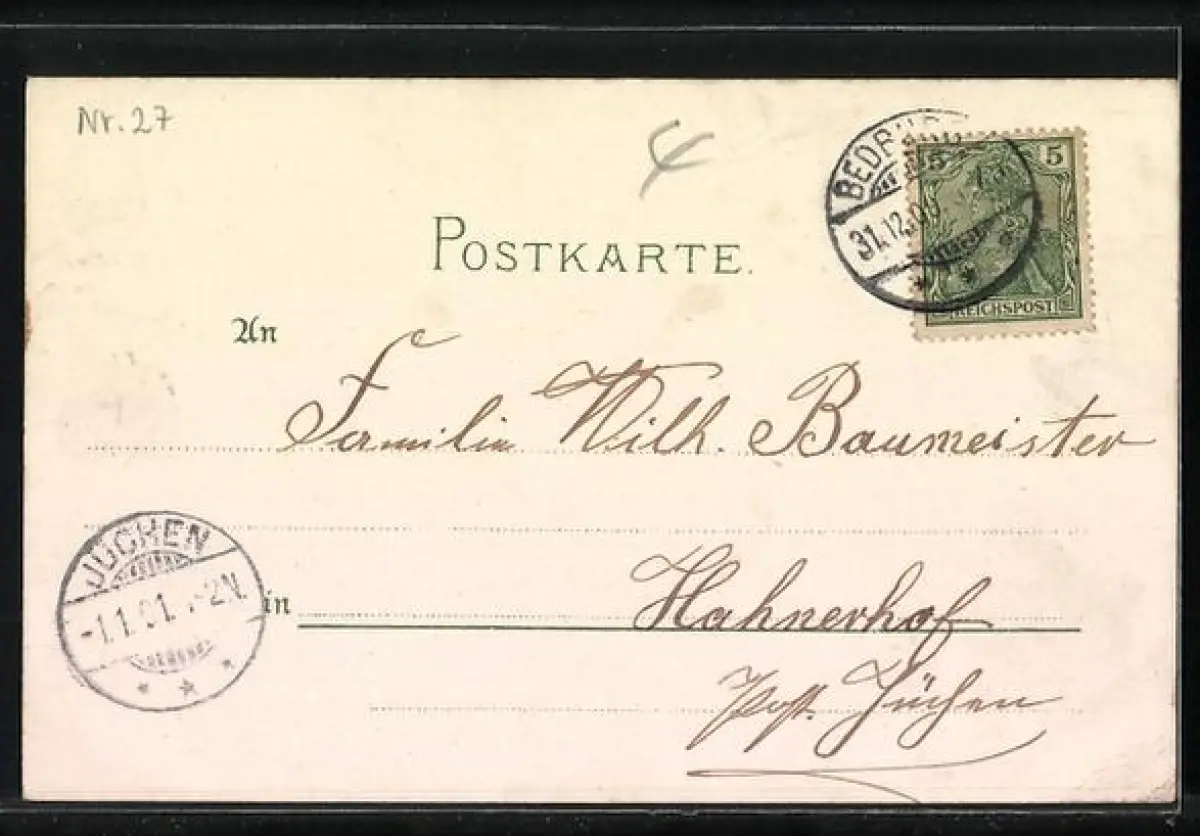 Nr. 27
5 5
31.12.00
REICHSPOST
POSTKARTE.
An
Familie Wilh. Baumeister
JÜCHEN
-1.1.01. -2N.
in
Hahnerhof
Post. Jüchen